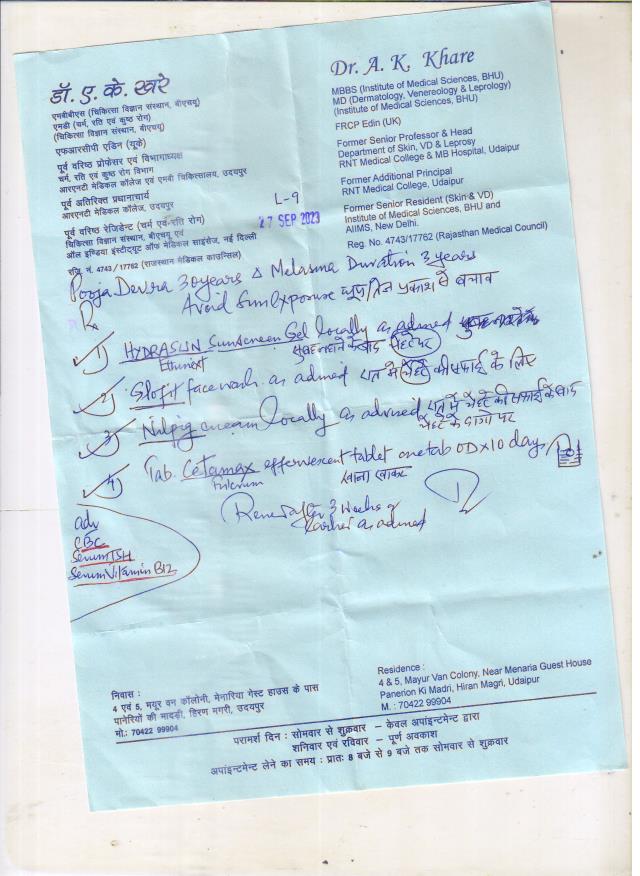 डॉ. ए. के. खरे
एमबीबीएस (चिकित्सा विज्ञान संस्थान, बीएचयू)
एमडी (चर्म, रति एवं कुष्ठ रोग)
(चिकित्सा विज्ञान संस्थान, बीएचयू)
एफआरसीपी एडिन (यूके)
पूर्व वरिष्ठ प्रोफेसर एवं विभागाध्यक्ष
चर्म, रति एवं कुष्ठ रोग विभाग
आरएनटी मेडिकल कॉलेज एवं एमबी चिकित्सालय, उदयपुर
पूर्व अतिरिक्त प्रधानाचार्य
आरएनटी मेडिकल कॉलेज, उदयपुर
पूर्व वरिष्ठ रेजिडेन्ट (चर्म एवं रति रोग)
चिकित्सा विज्ञान संस्थान, बीएचयू एवं
ऑल इण्डिया इंस्टीट्यूट ऑफ मेडिकल साइंसेज, नई दिल्ली
रजि. नं. 4743 / 17762 (राजस्थान मेडिकल काउन्सिल)
Dr. A. K. Khare
MBBS (Institute of Medical Sciences, BHU)
MD (Dermatology, Venereology & Leprology)
(Institute of Medical Sciences, BHU)
FRCP Edin (UK)
Former Senior Professor & Head
Department of Skin, VD & Leprosy
RNT Medical College & MB Hospital, Udaipur
Former Additional Principal
RNT Medical College, Udaipur
Former Senior Resident (Skin & VD)
Institute of Medical Sciences, BHU and
AIIMS, New Delhi.
Reg. No. 4743/17762 (Rajasthan Medical Council)
L-9
27 SEP 2023
Pooja 30 years Δ Melasma Duration 3 years
Avoid Sun Exposure धूप/तेज प्रकाश से बचाव
Rx
1) HYDRASUN Sunscreen Gel locally as advised
सुबह नहाने के बाद चेहरे पर
Ethinext
2) Glofit facewash as advised रात में चेहरे की सफाई के लिए
3) cream locally as advised रात में चेहरे की सफाई के बाद
चेहरे के दागों पर
4) Tab. Cetamax effervescent tablet one tab OD x 10 days
Fulcrum खाना खाकर
Review after 3 weeks or
earlier as advised
adv
CBC
Serum TSH
Serum Vitamin B12
निवास :
4 एवं 5, मयूर वन कॉलोनी, मेनारिया गेस्ट हाउस के पास
पानेरियों की मादड़ी, हिरण मगरी, उदयपुर
मो.: 70422 99904
Residence :
4 & 5, Mayur Van Colony, Near Menaria Guest House
Panerion Ki Madri, Hiran Magri, Udaipur
M. : 70422 99904
परामर्श दिन : सोमवार से शुक्रवार – केवल अपांइन्टमेन्ट द्वारा
शनिवार एवं रविवार – पूर्ण अवकाश
अपांइन्टमेन्ट लेने का समय : प्रातः 8 बजे से 9 बजे तक सोमवार से शुक्रवार